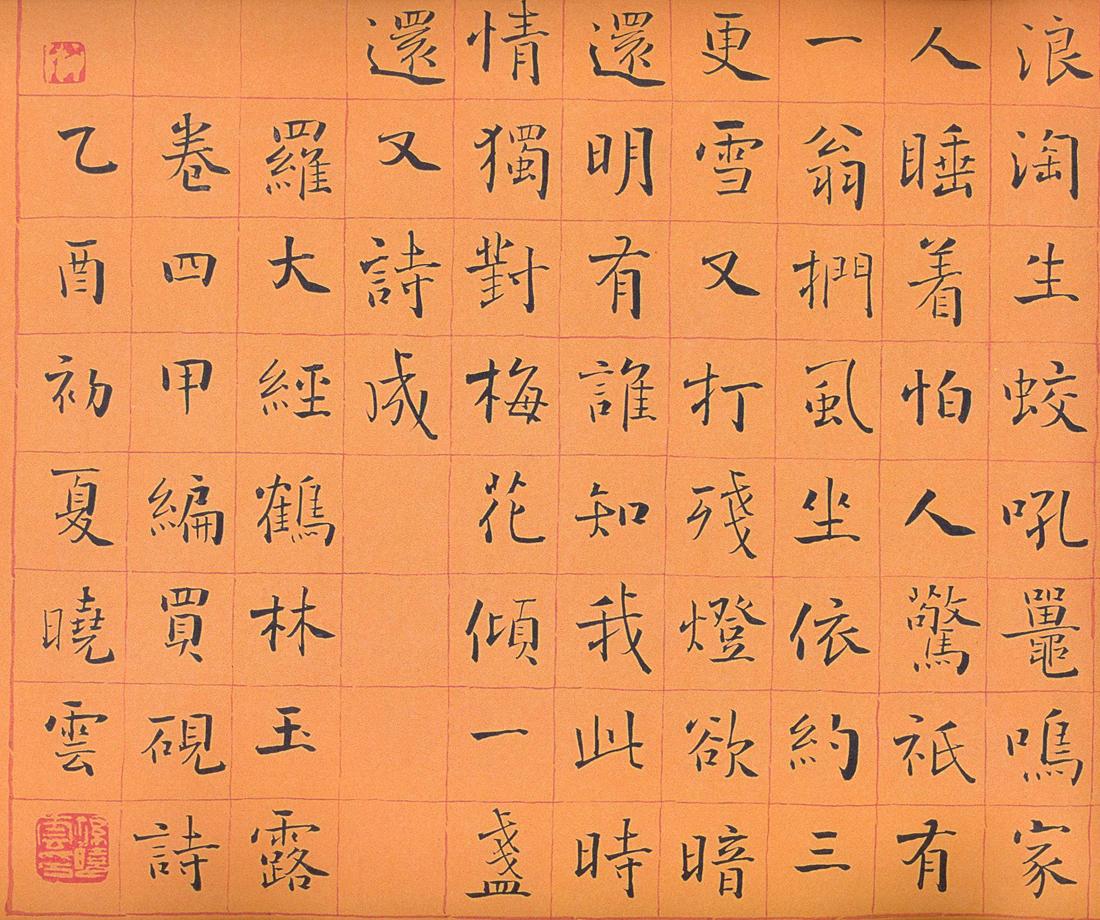 浪淘生蛟吼鼉鳴家
人睡着怕人驚祇有
一翁捫虱坐依約三
更雪又打殘燈欲暗
還明有誰知我此時
情獨對梅花傾一盞
還又詩成
羅大經鶴林玉露
卷四甲編買硯詩
乙酉初夏曉雲
孫曉雲印